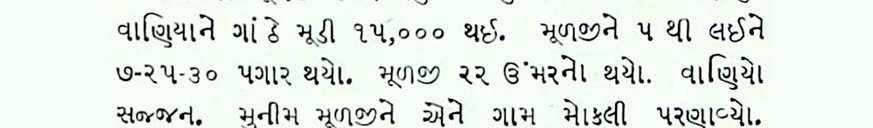 વાણિયાને ગાંઠે મૂડી ૧૫,૦૦૦ થઈ. મૂળજીને ૫ થી લઈને
૭-૨૫-૩૦ પગાર થયો. મૂળજી ૨૨ ઉંમરનો થયો. વાણિયો
સજ્જન. મુનીમ મૂળજીને એને ગામ મોકલી પરણાવ્યો.